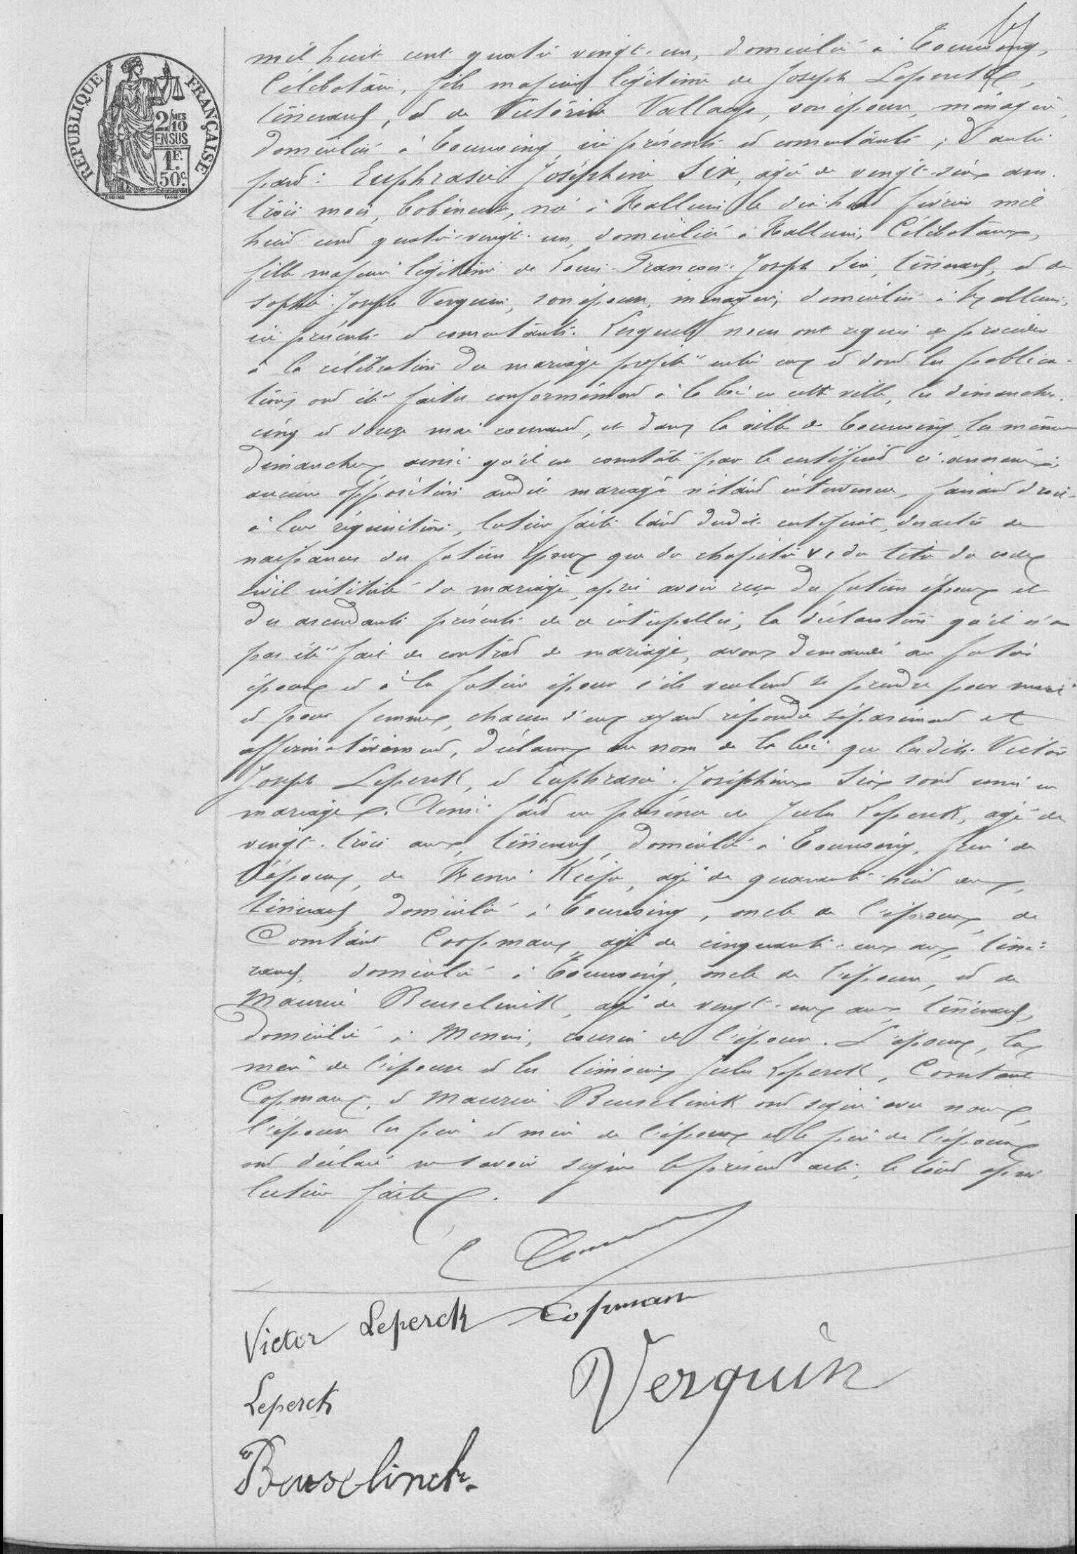 RÉPUBLIQUE FRANÇAISE
2/10MES
EN SUS
1F.
50c.
mil huit cent quatre vingt-un, domicilié à Tourcoing,
Célibataire, fils majeur légitime de Joseph Leperck,
tisserand, et de Victorine Vallaeys, son épouse, ménagère,
domiciliés à Tourcoing ici présents et consentants ; d'autre
part : Euphrasie Joséphine Six, âgée de vingt-six ans
trois mois, bobineuse, née à Halluin le dix huit février mil
huit cent quatre-vingt-un, domiciliée à Halluin, Célibataire,
fille majeure légitime de Louis François Joseph Six, tisserand, et de
Sophie Joseph Verquin, son épouse, ménagère, domiciliés à Halluin,
ici présents et consentants. Lesquels nous ont requis de procéder
à la célébration du mariage projeté entre eux et dont les publica-
tions ont été faites conformément à la loi en cette ville, les dimanches
cinq et douze mai courant, et dans la ville de Tourcoing les mêmes
dimanches ainsi qu'il en constate par le certificat ci-annexé,
aucune opposition audit mariage n'étant intervenue, faisant droit
à leur réquisition, lecture faite tant dudit certificat, des actes de
naissance des futurs époux que du chapitre VI du titre du code
civil intitulé du mariage, après avoir reçu des futurs époux et
des ascendants présents de ce interpellés, la déclaration qu'il n'a
pas été fait de contrat de mariage, avons demandé au futur
époux et à la future épouse s'ils veulent se prendre pour mari
et pour femme, chacun d'eux ayant répondu séparément et
affirmativement, déclarons au nom de la loi que lesdits Victor
Joseph Leperck, et Euphrasie Joséphine Six sont unis en
mariage. Ainsi fait en présence de Jules Leperck, âgé de
vingt-trois ans, tisserand, domicilié à Tourcoing, frère de
l'époux, de Henri, âgé de quarante huit ans,
tisserand, domicilié à Tourcoing, oncle de l'époux, de
Constant Coopman, âgé de cinquante ans, tisse-
rand, domicilié à Tourcoing, oncle de l'époux, et de
Maurice Beuselinck, âgé de vingt ans, tisserand,
domicilié à Menin, cousin de l'épouse. L'époux, la
mère de l'épouse et les témoins Jules Leperck, Constant
Copman, et Maurice Beuselinck ont signé avec nous,
l'épouse les père et mère de l'époux et le père de l'épouse
ont déclaré ne savoir signer le présent acte, le tout après
lecture faite.
Victor Leperck Copman
Verquin
Leperck
Beuselinck